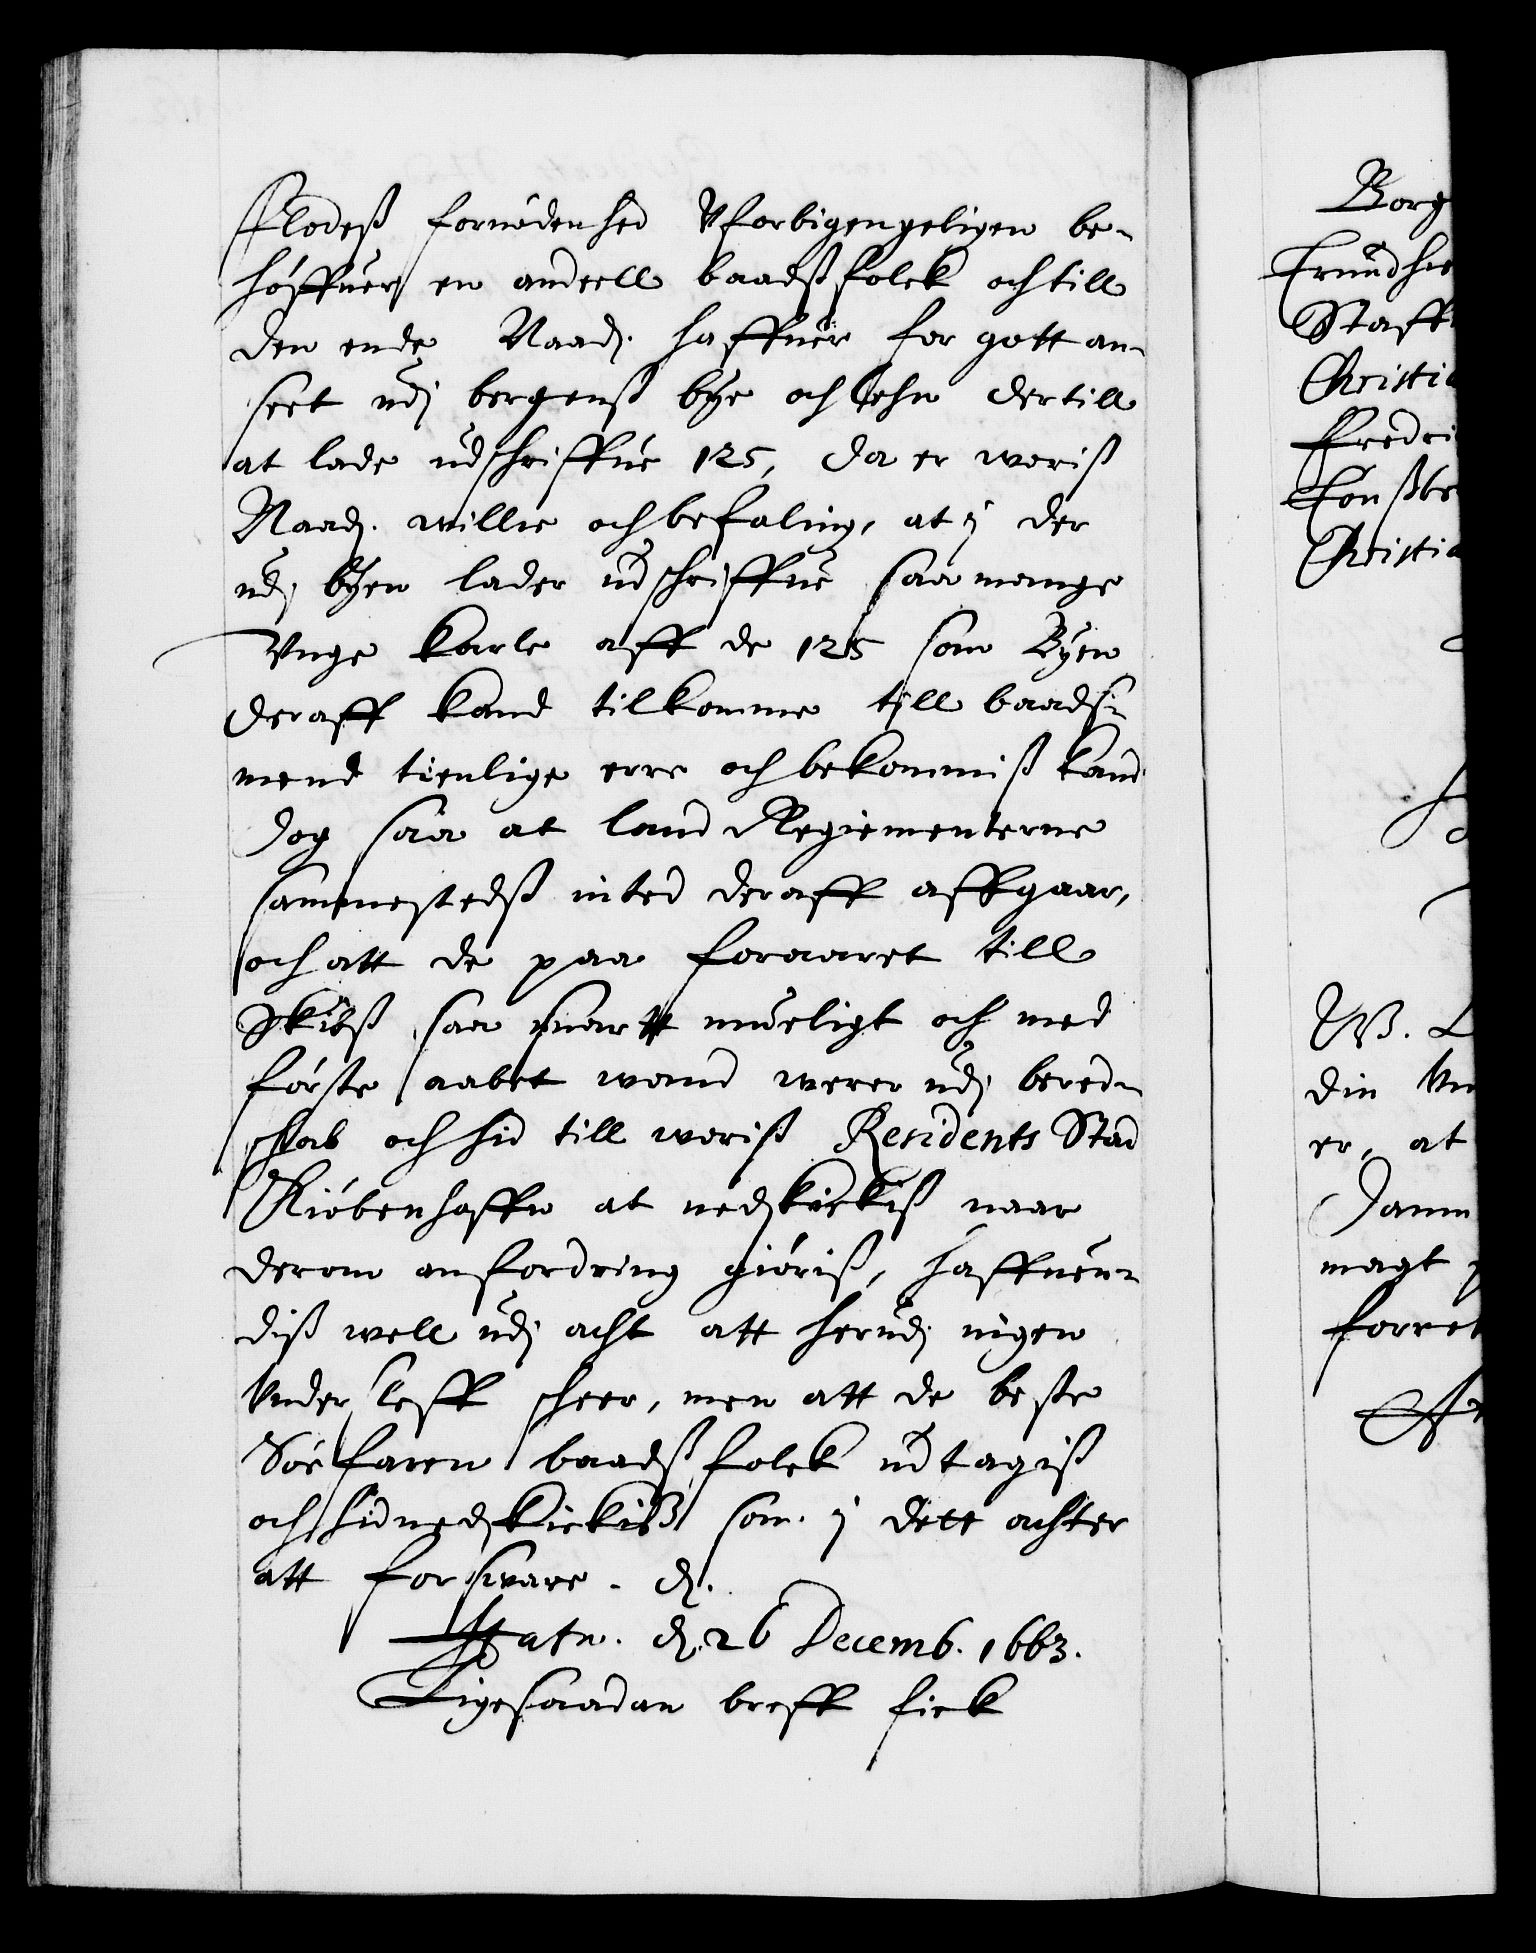 Flodeß fornødenhed Vforbigengeligen be-
høffuer en andeell baadßfolck och till
den ende Naad. haffuer for gott an-
seet udj bergenß bye och Lehn dertill
at lade udschriffue 125, da er woriß
Naad. willie och befaling, at j der
udj byen lader udschriffue saa mange
Vnge karle aff de 125 som Byen
deraff kand tilkomme till baadß-
mend tienlige erre och bekommiß kand
dog saa at land Regimenterne
sammestedß inted deraff affgaar,
och att de paa foraaret till
Skibß saa snart mueligt och med
første aabet wand werer udj bered-
schab och hid till woriß Residents Stad
Kiøbenhaffn at nedskickiß naar
derom anfordring giøriß, haffuen-
diß well udj acht att herudj ingen
Vnderslefft scheer, men att de beste
Søefaren baadßfolck udtagiß
och hid nedskickiß som j dett achter
att forsvare. d.
Hafn. d. 26 Decemb. 1663.
Ligesaadan breff fick
Borg
Trundhie
Staff
Christia
Fredri
Tonßbe
Christia
W. L
din Vn
er, at
Dann
magt
forret